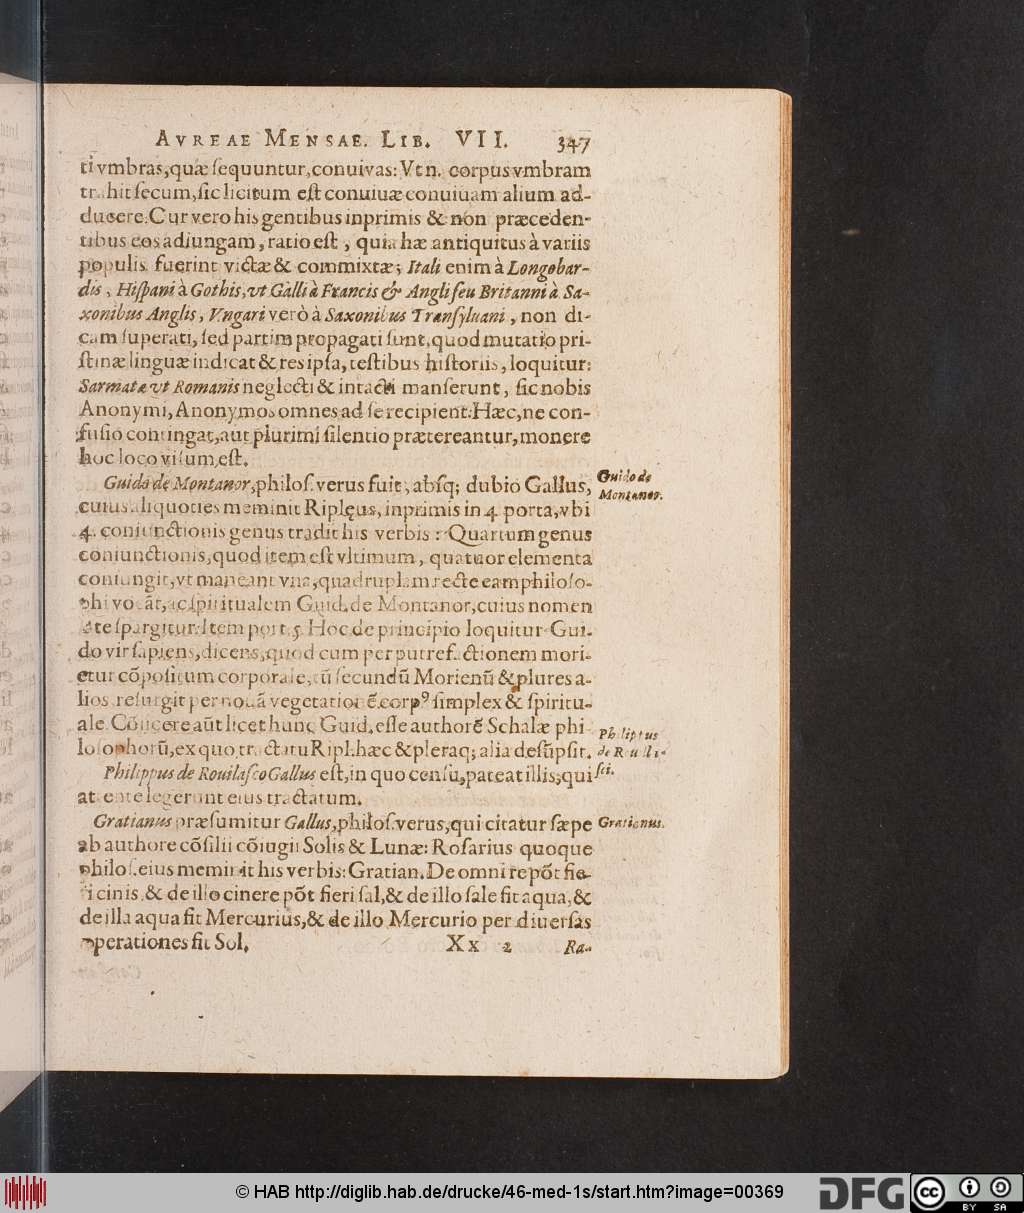 AVREAE MENSAE. LIB. VII. 347
ti vmbras, quæ ſequuntur, conuiuas: Vt n. corpus vmbram
trahit ſecum, ſic licitum eſt conuiuæ conuiuam alium ad-
ducere. Cur vero his gentibus inprimis & non præceden-
tibus eos adiungam, ratio eſt, quia hæ antiquitus à variis
populis fuerint victæ & commixtæ; Itali enim à Longobar-
dis, Hiſpani à Gothis, vt Galli à Francis & Angli ſeu Britanni à Sa-
xonibus Anglis, Vngari verò à Saxonibus Tranſyluani, non di-
cam ſuperati, ſed partim propagati ſunt, quod mutatio pri-
ſtinæ linguæ indicat & res ipſa, teſtibus hiſtoriis, loquitur:
Sarmatæ vt Romanis neglecti & intacti manſerunt, ſic nobis
Anonymi, Anonymos omnes ad ſe recipient: Hæc, ne con-
fuſio contingat, aut plurimi ſilentio prætereantur, monere
hoc loco viſum eſt.
Guido de Montanor, philoſ. verus fuit, abſq; dubio Gallus,
Guido de
Montanor.
cuius aliquoties meminit Riplęus, inprimis in 4. porta, vbi
4. coniunctionis genus tradit his verbis: Quartum genus
coniunctionis, quod item eſt vltimum, quatuor elementa
coniungit, vt maneant vna, quadruplam recte eam philoſo-
phi vocāt, ac ſpiritualem Guid. de Montanor, cuius nomen
ſpargitur. Item port. 5. Hoc de principio loquitur Gui-
do vir ſapiens, dicens, quod cum per putrefactionem mori-
etur cōpoſitum corporale, cū ſecundū Morienū & plures a-
lios reſurgit per nouā vegetationē corpꝰ ſimplex & ſpiritu-
ale. Cōiicere aūt licet hunc Guid. eſſe authorē Schalæ phi-
loſophorū, ex quo tractatu Ripl. hæc & pleraq; alia deſūpſit.
Philippus
de Rouila-
ſci.
Philippus de Rouilaſco Gallus eſt, in quo cenſu, pateat illis, qui
attente legerunt eius tractatum.
Gratianus præſumitur Gallus, philoſ. verus, qui citatur ſæpe
Gratianus.
ab authore cōſilii cōiugii Solis & Lunæ: Roſarius quoque
philoſ. eius meminit his verbis: Gratian. De omni re pōt fie-
ri cinis, & de illo cinere pōt fieri ſal, & de illo ſale fit aqua, &
de illa aqua fit Mercurius, & de illo Mercurio per diuerſas
operationes fit Sol.
Xx 2 Ra-
© HAB http://diglib.hab.de/drucke/46-med-1s/start.htm?image=00369
DFG
cc BY SA